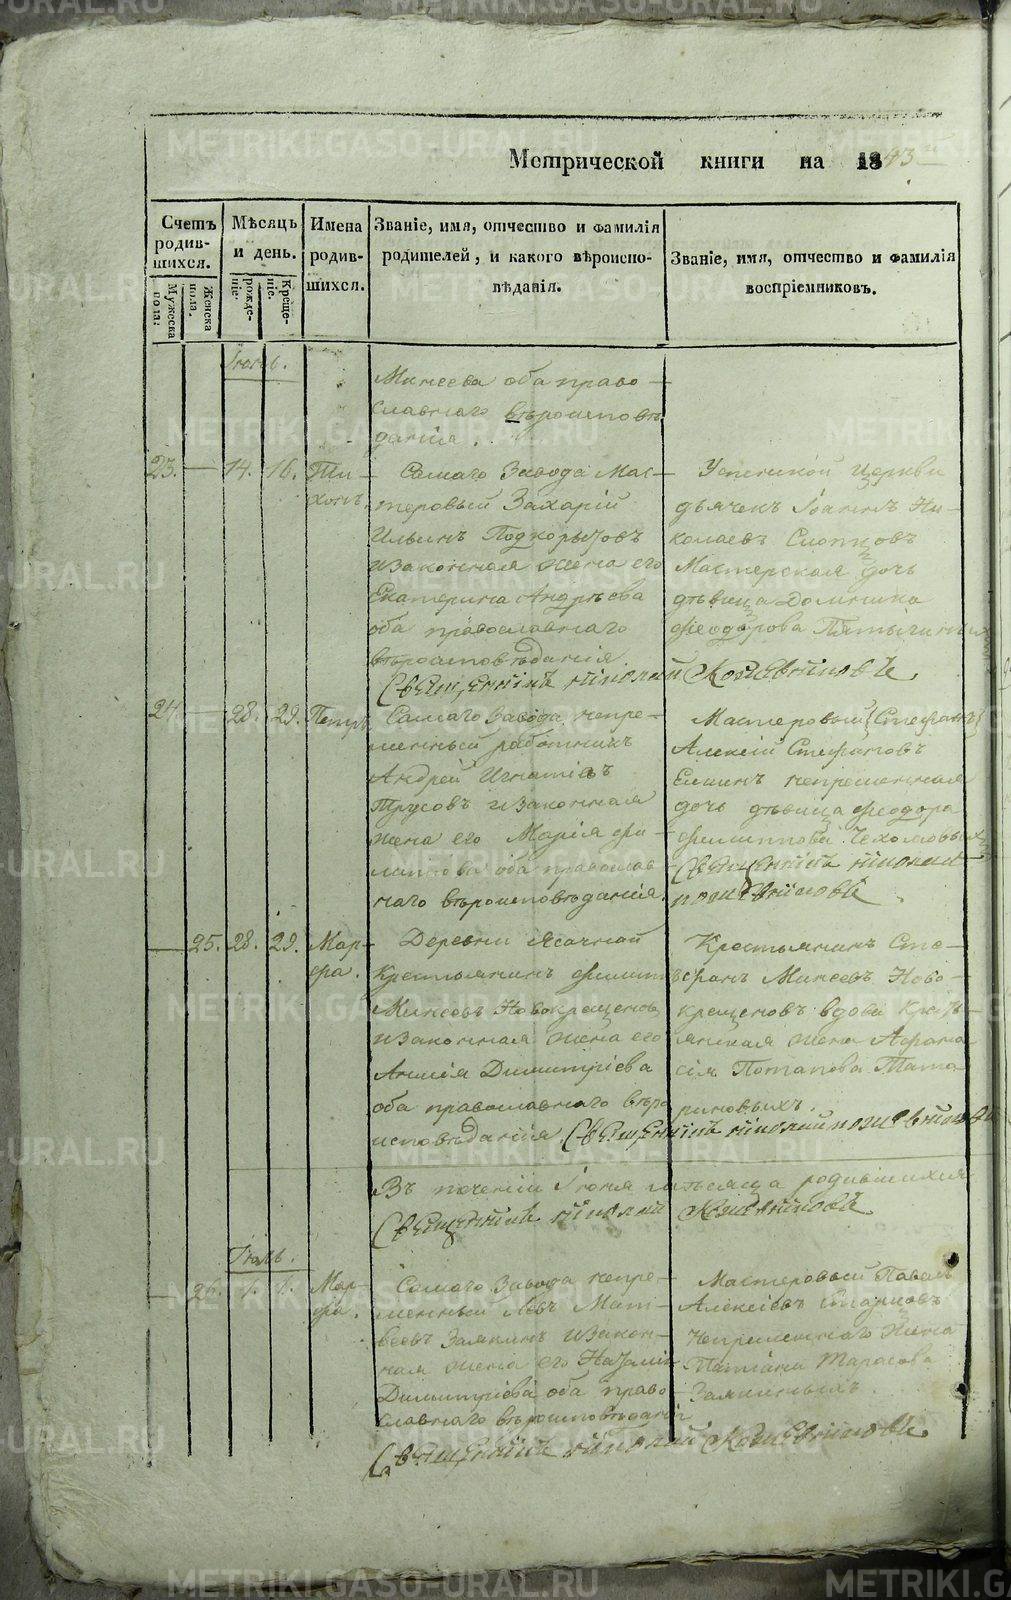 Метрической книги на 1843
Счетъ родившихся.
Мужеска пола.
Женска пола.
Мѣсяцъ и день.
рожденіе.
Крещеніе.
Имена родившихся.
Званіе, имя, отчество и фамилія
родителей, и какого вѣроиспо-
вѣданія.
Званіе, имя, отчество и фамилія
воспріемниковъ.
Іюнь.
Минеева оба право-
славнаго вѣроисповѣ
данія.
23. — 14. 16. Ти-
хонъ.
Самаго Завода Мас-
теровый Захарій
Ильинъ Подкорытовъ
изаконная жена его
Екатерина Андрѣева
оба православнаго
вѣроисповѣданія.
Успенской Церкви
дьячекъ Іоаннъ Ни-
колаевъ Слотцовъ
Мастерская дочь
дѣвица Домника
Феодорова
Священникъ Николай Кожевниковъ
24. — 28. 29. Петръ
Самаго Завода непре-
менный работникъ
Андрей Игнатіевъ
Трусовъ изаконная
жена его Марія Фи-
липпова оба православ
наго вѣроисповѣданія.
Мастеровый (Стефанъ)
Алексій Стефановъ
Елшинъ непременная
дочь дѣвица Феодора
Филиппова
Священникъ Николай
Кожевниковъ
— 25. 28. 29. Мар-
фа.
Деревни Ясачной
Крестьянинъ Филиппъ
Минеевъ Новокрещеновъ
изаконная жена его
Анисія Димитріева
оба православнаго вѣро
исповѣданія.
Крестьянинъ Сте-
фанъ Минеевъ Ново-
крещеновъ вдова Кресть-
янская жена Афана-
сія Потапова Тата-
риновыхъ.
Священникъ Николай Кожевниковъ
Въ теченіи Іюня мѣсяца родившихся
Священникъ Николай Кожевниковъ
Іюль.
— 26. 1. 1. Мар-
фа.
Самаго Завода непре-
менный Левъ Мат-
веевъ Замкинъ изакон-
ная жена его Наталія
Димитріева оба право
славнаго вѣроисповѣданія
Мастеровый Павелъ
Алексіевъ Старцовъ
Непременнаго жена
Татіана Тарасова
Священникъ Николай Кожевниковъ
METRIKI.GASO-URAL.RU